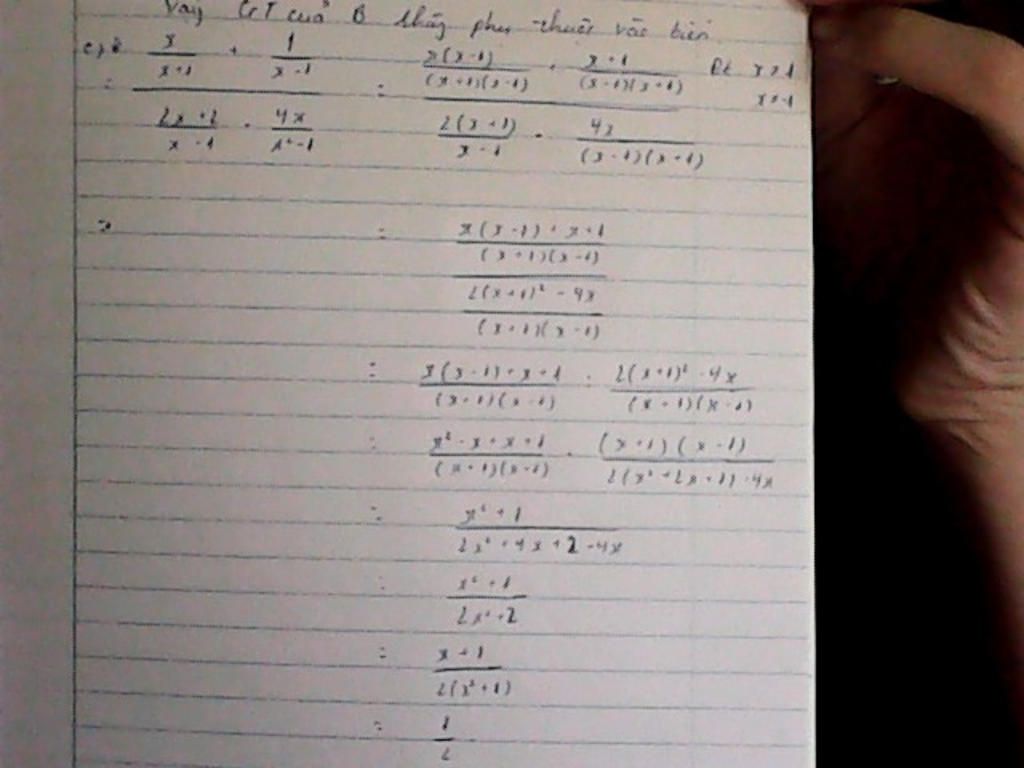 Vậy GT của B không phụ thuộc vào biến
c, x/(x+1) + 1/(x-1) = x(x-1)/((x+1)(x-1)) + x+1/((x-1)(x+1)) x≠1
x≠-1
(2x+2)/(x-1) - 4x/(x²-1) 2(x+1)/(x-1) - 4x/((x-1)(x+1))
= x(x-1)+x+1/((x+1)(x-1))
2(x+1)²-4x/((x+1)(x-1))
= x(x-1)+x+1/((x+1)(x-1)) : 2(x+1)²-4x/((x+1)(x-1))
= x²-x+x+1/((x+1)(x-1)) . (x+1)(x-1)/(2(x²+2x+1)-4x)
= x²+1/(2x²+4x+2-4x)
= x²+1/(2x²+2)
= x+1/(2(x²+1))
= 1/2